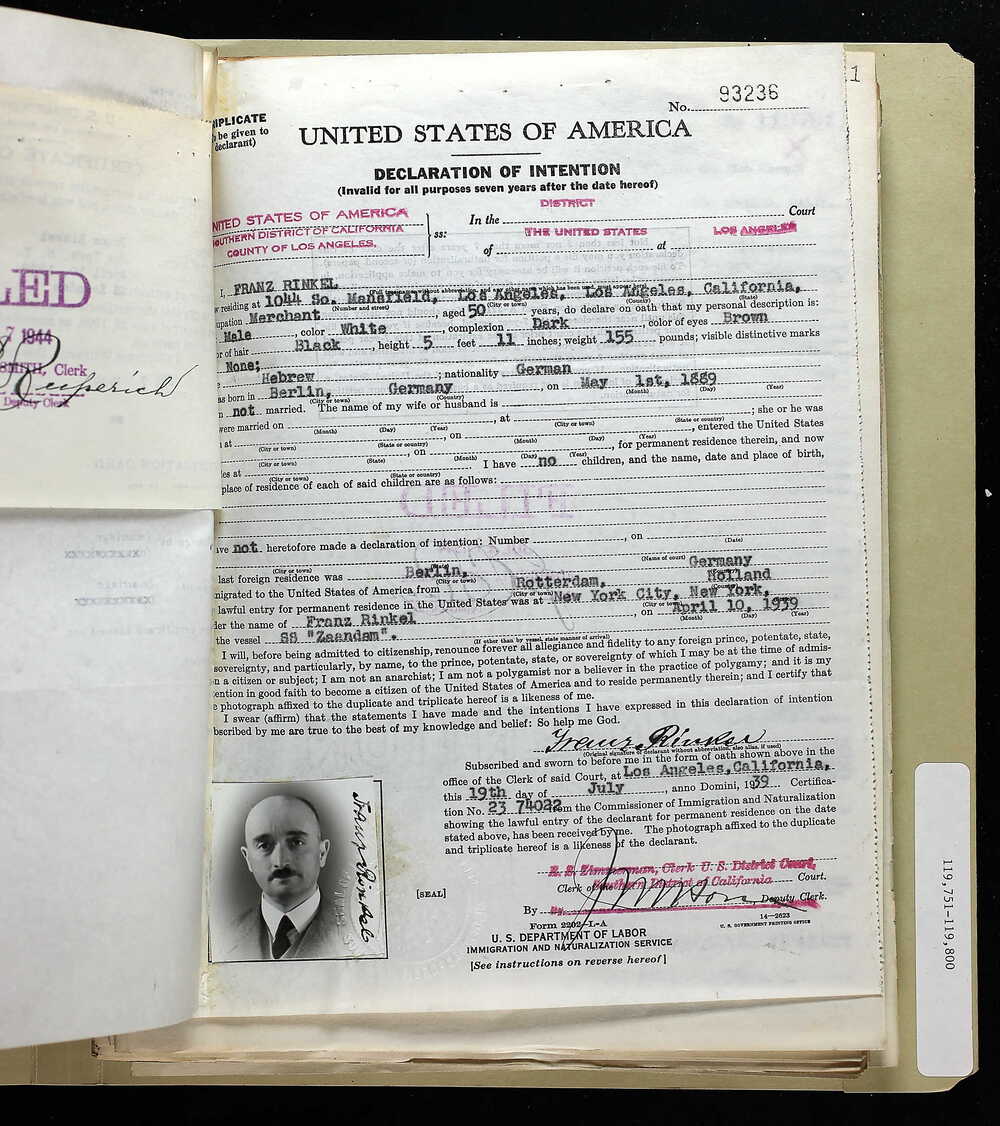 1
No. 93236
IPLICATE
be given to
declarant)
UNITED STATES OF AMERICA
DECLARATION OF INTENTION
(Invalid for all purposes seven years after the date hereof)
NITED STATES OF AMERICA
OUTHERN DISTRICT OF CALIFORNIA
COUNTY OF LOS ANGELES.
ss:
In the DISTRICT Court
of THE UNITED STATES at LOS ANGELES
I, FRANZ RINKEL
residing at 1044 So. Mansfield, Los Angeles, Los Angeles, California,
(Number and street) (City or town) (County) (State)
upation Merchant, aged 50 years, do declare on oath that my personal description is:
Male, color White, complexion Dark, color of eyes Brown
or of hair Black, height 5 feet 11 inches; weight 155 pounds; visible distinctive marks
None;
Hebrew; nationality German
as born in Berlin, Germany, on May 1st, 1889
(City or town) (Country) (Month) (Day) (Year)
not married. The name of my wife or husband is
were married on, at; she or he was
(Month) (Day) (Year) (City or town) (State or country)
at, on, entered the United States
(City or town) (State or country) (Month) (Day) (Year)
, on, for permanent residence therein, and now
(City or town) (State) (Month) (Day) (Year)
es at. I have no children, and the name, date and place of birth,
(City or town) (State or country)
place of residence of each of said children are as follows:
ave not heretofore made a declaration of intention: Number, on
(Date)
(City or town) (Name of court)
last foreign residence was Berlin, Germany
(City or town) (Country)
migrated to the United States of America from Rotterdam, Holland
(City or town) (Country)
lawful entry for permanent residence in the United States was at New York City, New York,
(City or town)
der the name of Franz Rinkel, on April 10, 1939
(Month) (Day) (Year)
the vessel SS "Zaandam".
(If other than by vessel, state manner of arrival)
I will, before being admitted to citizenship, renounce forever all allegiance and fidelity to any foreign prince, potentate, state,
sovereignty, and particularly, by name, to the prince, potentate, state, or sovereignty of which I may be at the time of admis-
n a citizen or subject; I am not an anarchist; I am not a polygamist nor a believer in the practice of polygamy; and it is my
tention in good faith to become a citizen of the United States of America and to reside permanently therein; and I certify that
e photograph affixed to the duplicate and triplicate hereof is a likeness of me.
I swear (affirm) that the statements I have made and the intentions I have expressed in this declaration of intention
bscribed by me are true to the best of my knowledge and belief: So help me God.
Franz Rinkel
(Original signature of declarant without abbreviation, also alias, if used)
Subscribed and sworn to before me in the form of oath shown above in the
office of the Clerk of said Court, at Los Angeles, California,
this 19th day of July, anno Domini, 1939 Certifica-
tion No. 23 74022 from the Commissioner of Immigration and Naturalization
showing the lawful entry of the declarant for permanent residence on the date
stated above, has been received by me. The photograph affixed to the duplicate
and triplicate hereof is a likeness of the declarant.
Franz Rinkel
[SEAL]
Zimmerman, Clerk U. S. District Court,
Clerk of Southern District of California Court.
By Deputy Clerk.
Form 2202-L-A
14—2623
U. S. GOVERNMENT PRINTING OFFICE
U. S. DEPARTMENT OF LABOR
IMMIGRATION AND NATURALIZATION SERVICE
[See instructions on reverse hereof]
LED
7 1944
SMITH, Clerk
Deputy Clerk
119,751-119,800